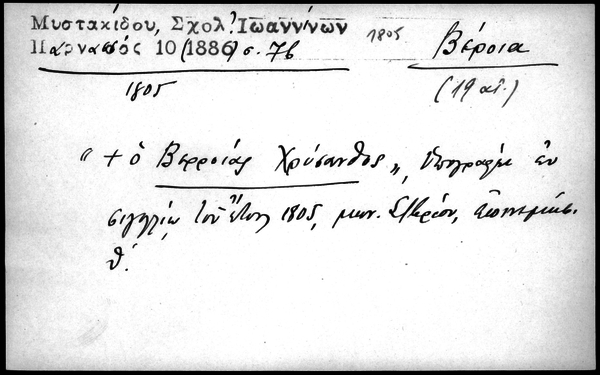 Μυστακίδου, Σχολ. Ἰωαννίνων
Παρνασσός 10 (1886) σ. 76
1805
Βέροια
1805
(19 αἰ.)
"+ ὁ Βερροίας Χρύσανθος", ὑπογραφὴ ἐν
σιγιλλίῳ τοῦ ἔτους 1805,
θ'.